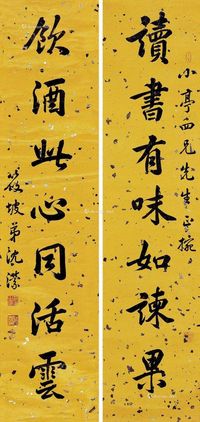 讀書有味如諫果
小亭四兄先生正捥
飲酒此心同活雲
筱坡弟沈濚